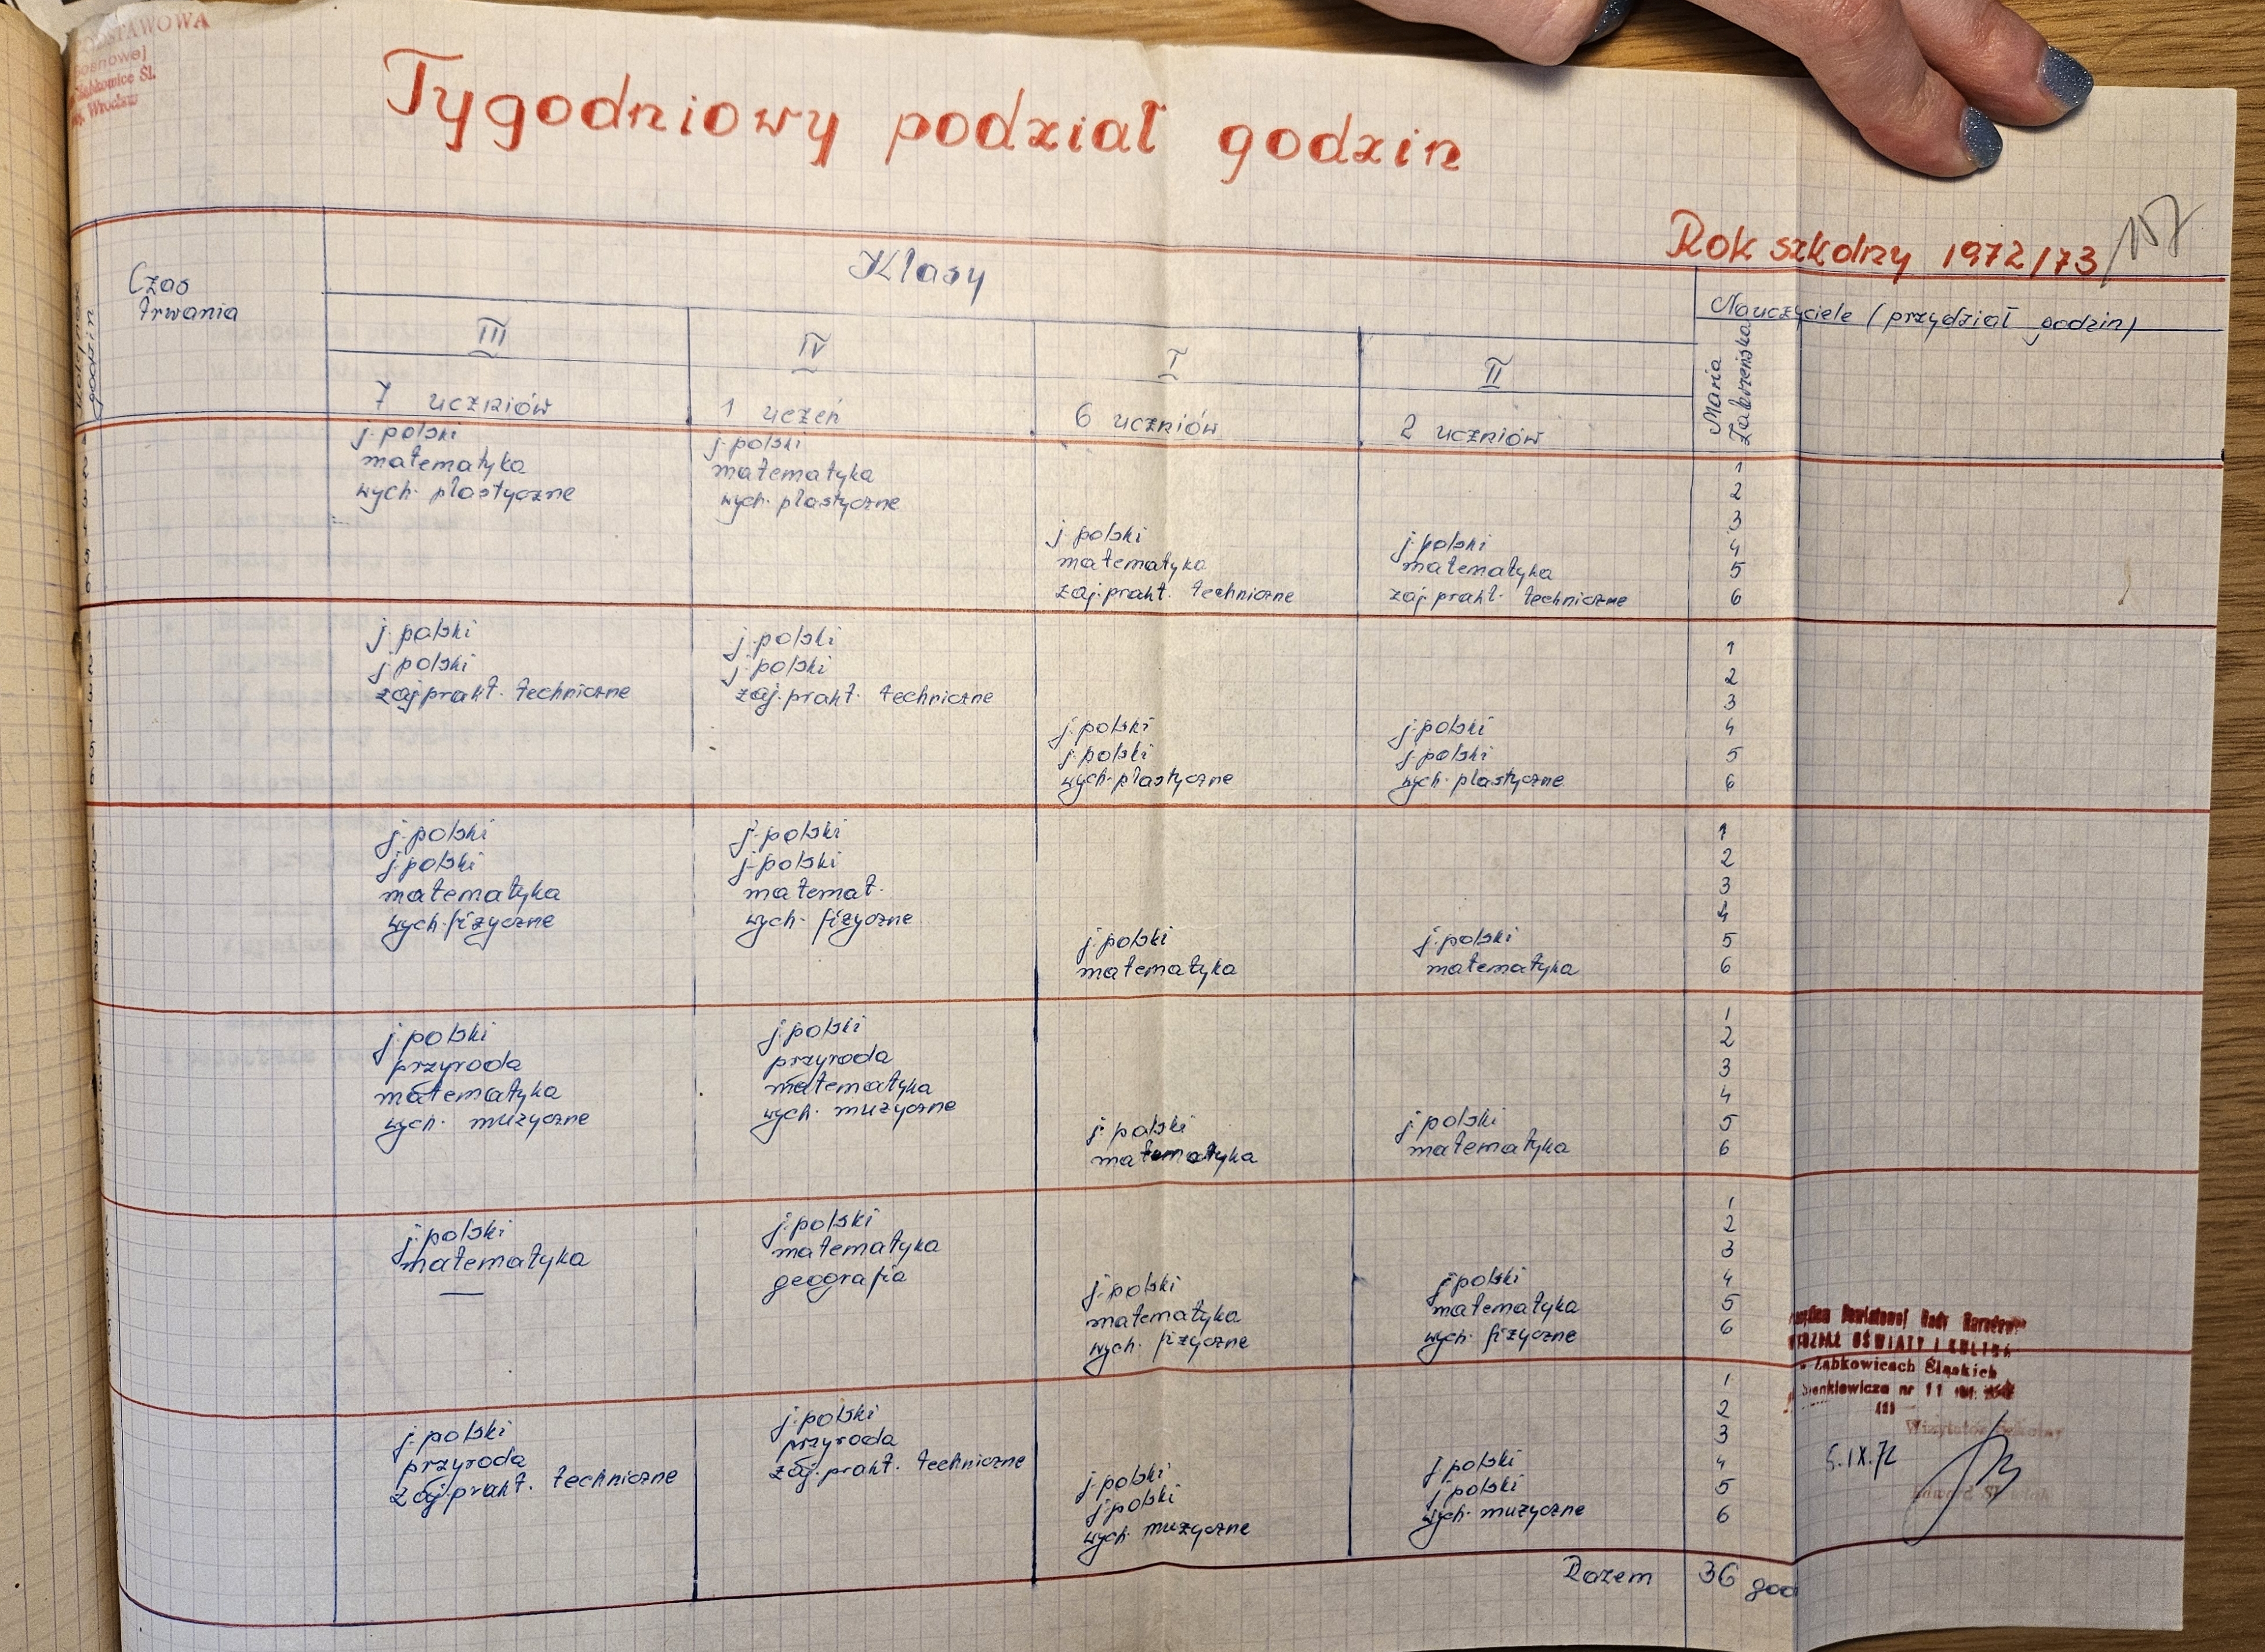 Tygodniowy podział godzin
Rok szkolny 1972/73
157
Czas
trwania
godzin
Klasy
Nauczyciele (przydział godzin)
III
IV
I
II
Maria
7 uczniów
1 uczeń
6 uczniów
2 uczniów
j. polski j. polski 1
matematyka matematyka 2
wych. plastyczne wych. plastyczne 3
j. polski j. polski 4
matematyka matematyka 5
zaj. prakt. techniczne zaj. prakt. techniczne 6
j. polski j. polski 1
j. polski j. polski 2
zaj. prakt. techniczne zaj. prakt. techniczne 3
j. polski j. polski 4
j. polski j. polski 5
wych. plastyczne wych. plastyczne 6
j. polski j. polski 1
j. polski j. polski 2
matematyka matemat. 3
wych. fizyczne wych. fizyczne 4
j. polski j. polski 5
matematyka matematyka 6
j. polski j. polski 1
przyroda przyroda 2
matematyka matematyka 3
wych. muzyczne wych. muzyczne 4
j. polski j. polski 5
matematyka matematyka 6
j. polski j. polski 1
matematyka matematyka 2
— geografia 3
j. polski j. polski 4
matematyka matematyka 5
wych. fizyczne wych. fizyczne 6
j. polski j. polski 1
przyroda przyroda 2
zaj. prakt. techniczne zaj. prakt. techniczne 3
j. polski j. polski 4
j. polski j. polski 5
wych. muzyczne wych. muzyczne 6
Powiatowej Rady
OŚWIATY I
Ząbkowicach Śląskich
nr 11
5.IX.72
Razem 36 god